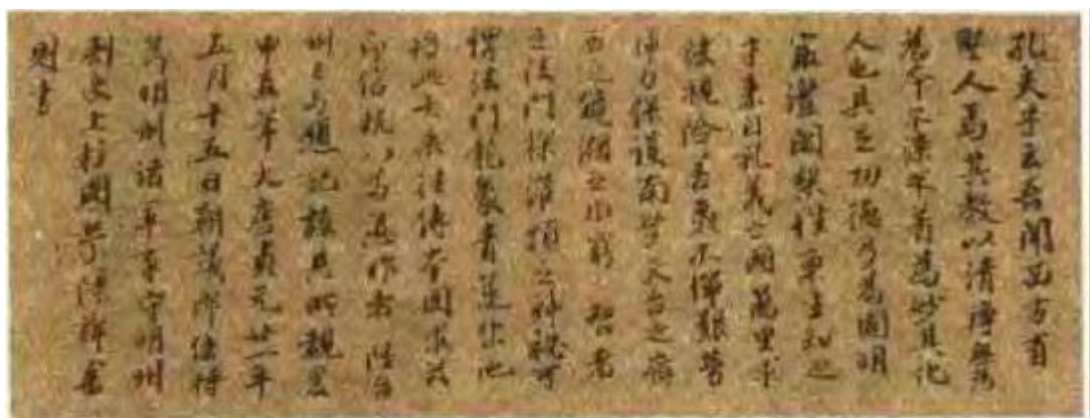 孔夫子云吾聞西方有
聖人焉其教以清净無為
為本不染不着為妙其化
人也具足功德乃為圓明
最澄闍梨性稟生知之
才來自礼義之國萬里求
法視險若夷不憚艱勞
神力保護南登天台之嶺
西泛鏡湖之水窮智者
之法門探灌頂之神秘可
謂法門龍象青蓮出池
將此大乘往傳本國求茲
印信執以為憑昨者陸台
州已与題記故具所覩爰
申直筆大唐貞元廿一年
五月十五日朝議郎使持
節明州諸軍事守明州
刺史上柱國滎陽鄭審
則書